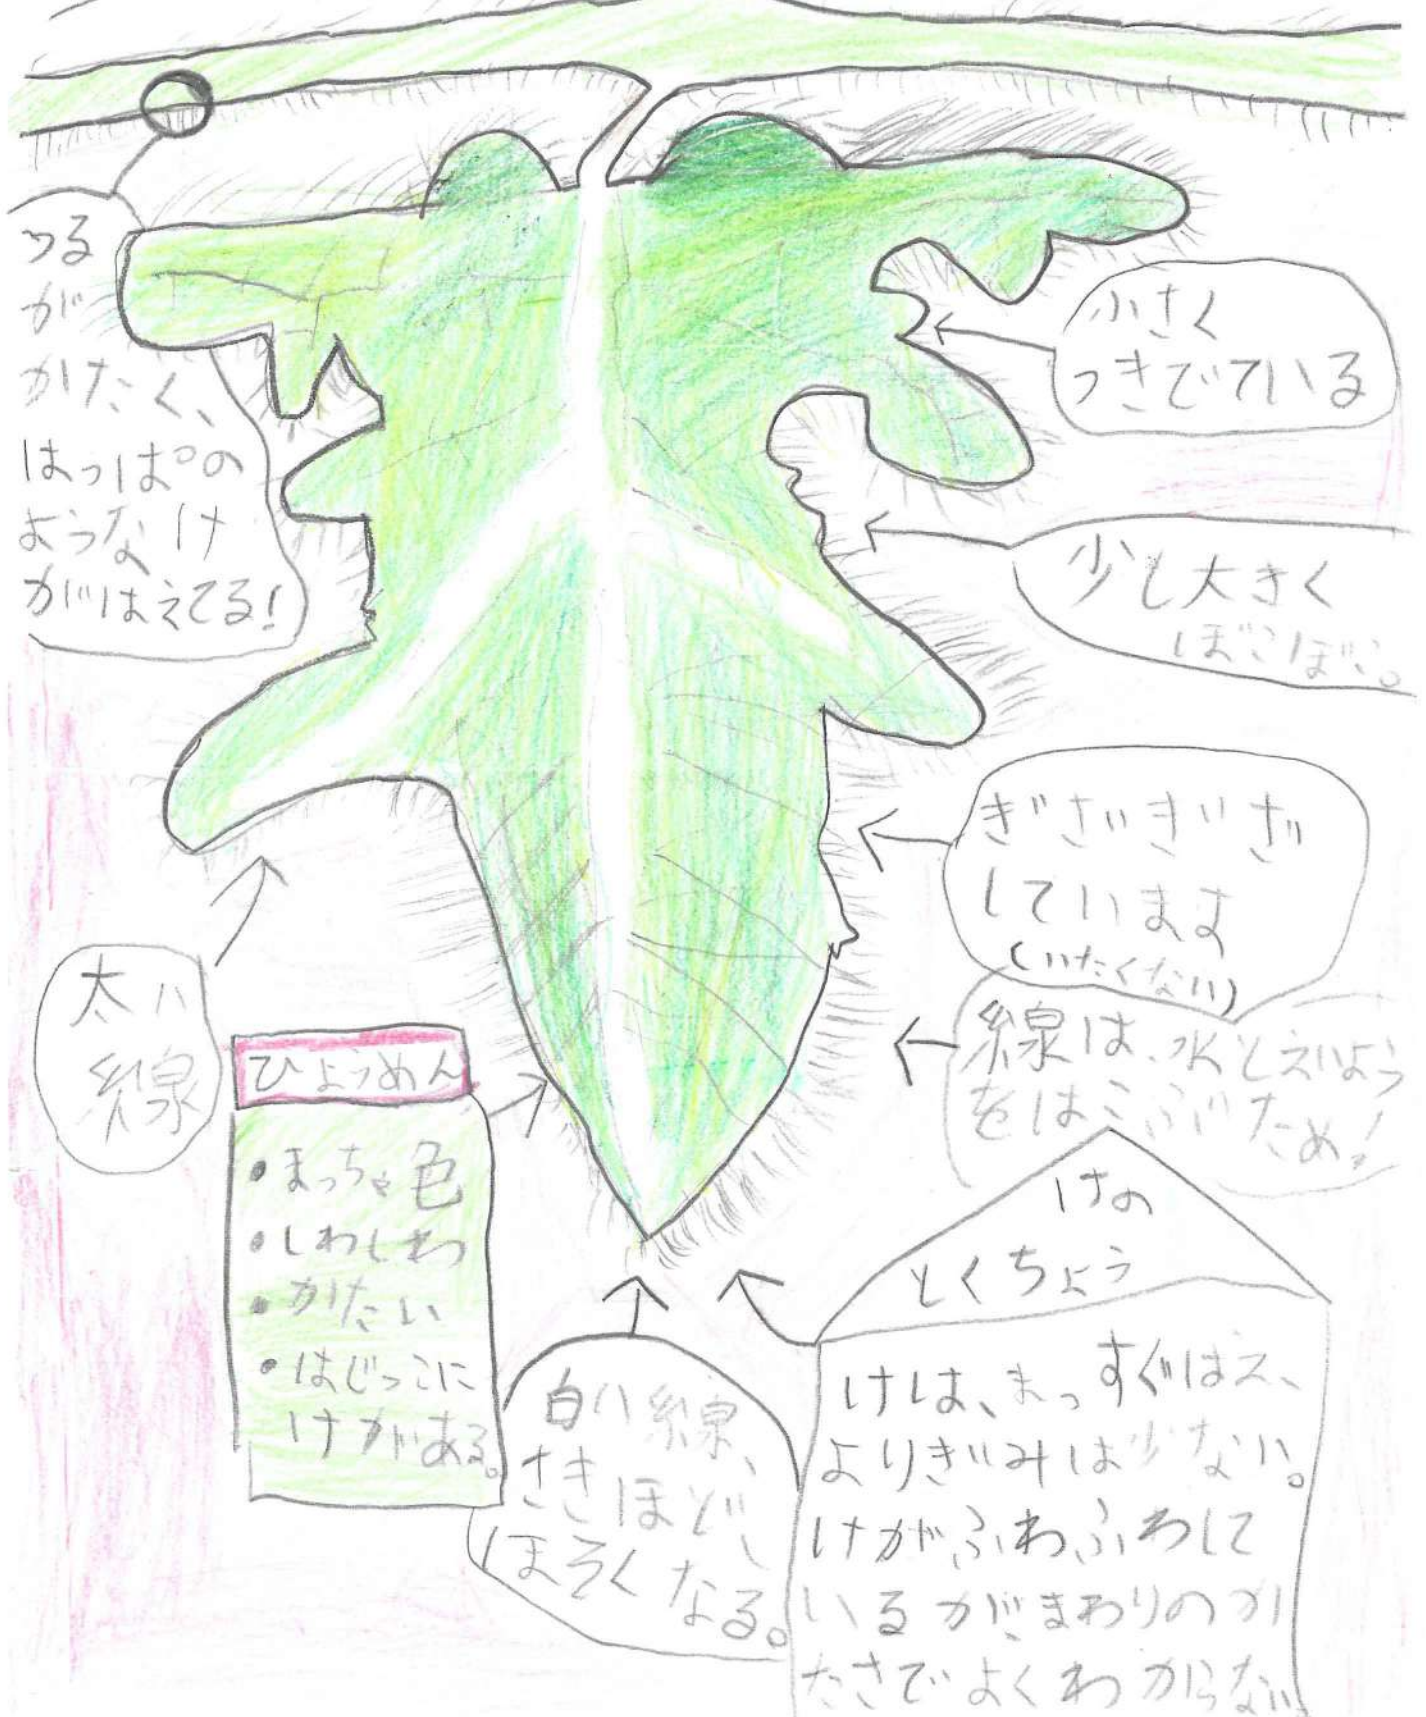 つる
が
かたく、
はっぱの
ようなけ
がはえてる!
小さく
つきでている
少し大きく
ぼこぼこ。
ぎざぎざ
しています
(いたくない)
線は、水とえいよう
をはこぶため!
太い
線
ひょうめん
・まっちゃ色
・しわしわ
・かたい
・はじっこに
けがある。
白い線、
さきほど、
ほそくなる。
けの
とくちょう
けは、まっすぐはえ、
よりぎみは少ない。
けがふわふわして
いるが、まわりのか
たさでよくわからない。